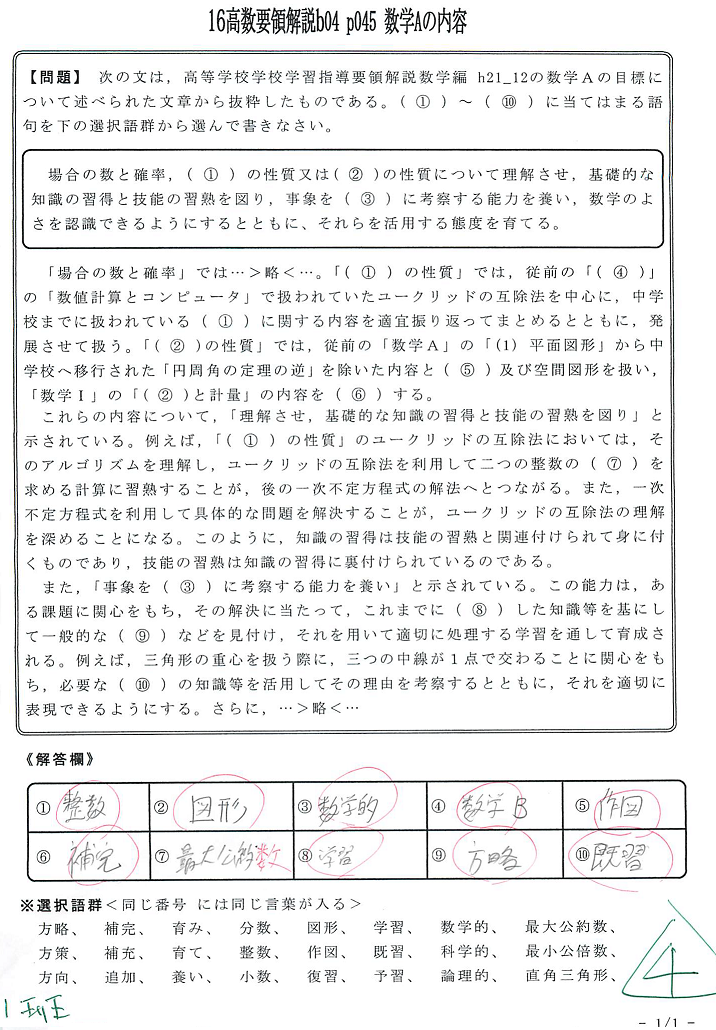 16高数要領解説b04 p045 数学Aの内容
【問題】 次の文は，高等学校学校学習指導要領解説数学編 h21_12の数学Aの目標に
ついて述べられた文章から抜粋したものである。( ① ) ～ ( ⑩ ) に当てはまる語
句を下の選択語群から選んで書きなさい。
場合の数と確率，( ① ) の性質又は( ② )の性質について理解させ，基礎的な
知識の習得と技能の習熟を図り，事象を ( ③ ) に考察する能力を養い，数学のよ
さを認識できるようにするとともに、それらを活用する態度を育てる。
「場合の数と確率」では…＞略＜…。「( ① ) の性質」では，従前の「( ④ )」
の「数値計算とコンピュータ」で扱われていたユークリッドの互除法を中心に，中学
校までに扱われている ( ① ) に関する内容を適宜振り返ってまとめるとともに，発
展させて扱う。「( ② )の性質」では，従前の「数学A」の「(1) 平面図形」から中
学校へ移行された「円周角の定理の逆」を除いた内容と ( ⑤ ) 及び空間図形を扱い，
「数学Ⅰ」の「( ② )と計量」の内容を ( ⑥ ) する。
これらの内容について，「理解させ，基礎的な知識の習得と技能の習熟を図り」と
示されている。例えば，「( ① ) の性質」のユークリッドの互除法においては，そ
のアルゴリズムを理解し，ユークリッドの互除法を利用して二つの整数の ( ⑦ ) を
求める計算に習熟することが，後の一次不定方程式の解法へとつながる。また，一次
不定方程式を利用して具体的な問題を解決することが，ユークリッドの互除法の理解
を深めることになる。このように，知識の習得は技能の習熟と関連付けられて身に付
くものであり，技能の習熟は知識の習得に裏付けられているのである。
また，「事象を ( ③ ) に考察する能力を養い」と示されている。この能力は，あ
る課題に関心をもち，その解決に当たって，これまでに ( ⑧ ) した知識等を基にし
て一般的な ( ⑨ ) などを見付け，それを用いて適切に処理する学習を通して育成さ
れる。例えば，三角形の重心を扱う際に，三つの中線が1点で交わることに関心をも
ち，必要な ( ⑩ ) の知識等を活用してその理由を考察するとともに，それを適切に
表現できるようにする。さらに，…＞略＜…
《解答欄》
① 整数 ② 図形 ③ 数学的 ④ 数学B ⑤ 作図
⑥ 補完 ⑦ 最大公約数 ⑧ 学習 ⑨ 方略 ⑩ 既習
※選択語群＜同じ番号 には同じ言葉が入る＞
方略、 補完、 育み、 分数、 図形、 学習、 数学的、 最大公約数、
方策、 補充、 育て、 整数、 作図、 既習、 科学的、 最小公倍数、
方向、 追加、 養い、 小数、 復習、 予習、 論理的、 直角三角形、
4
- 1/1 -